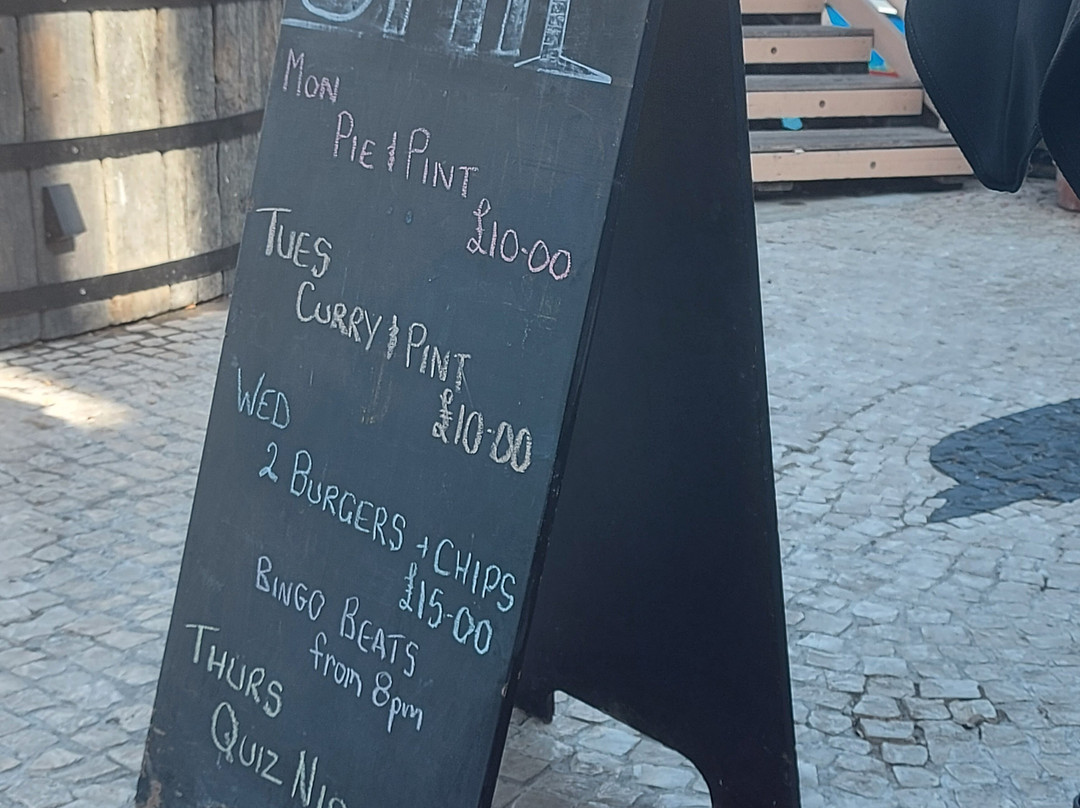 MON
PIE & PINT
£10-00
TUES
CURRY & PINT
£10-00
WED
2 BURGERS + CHIPS
£15-00
BINGO BEATS
from 8pm
THURS
QUIZ